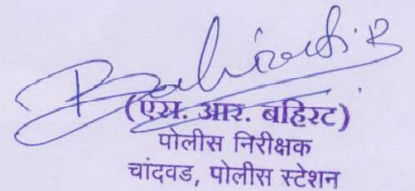 (एस. आर. बहिरट)
पोलीस निरीक्षक
चांदवड, पोलीस स्टेशन